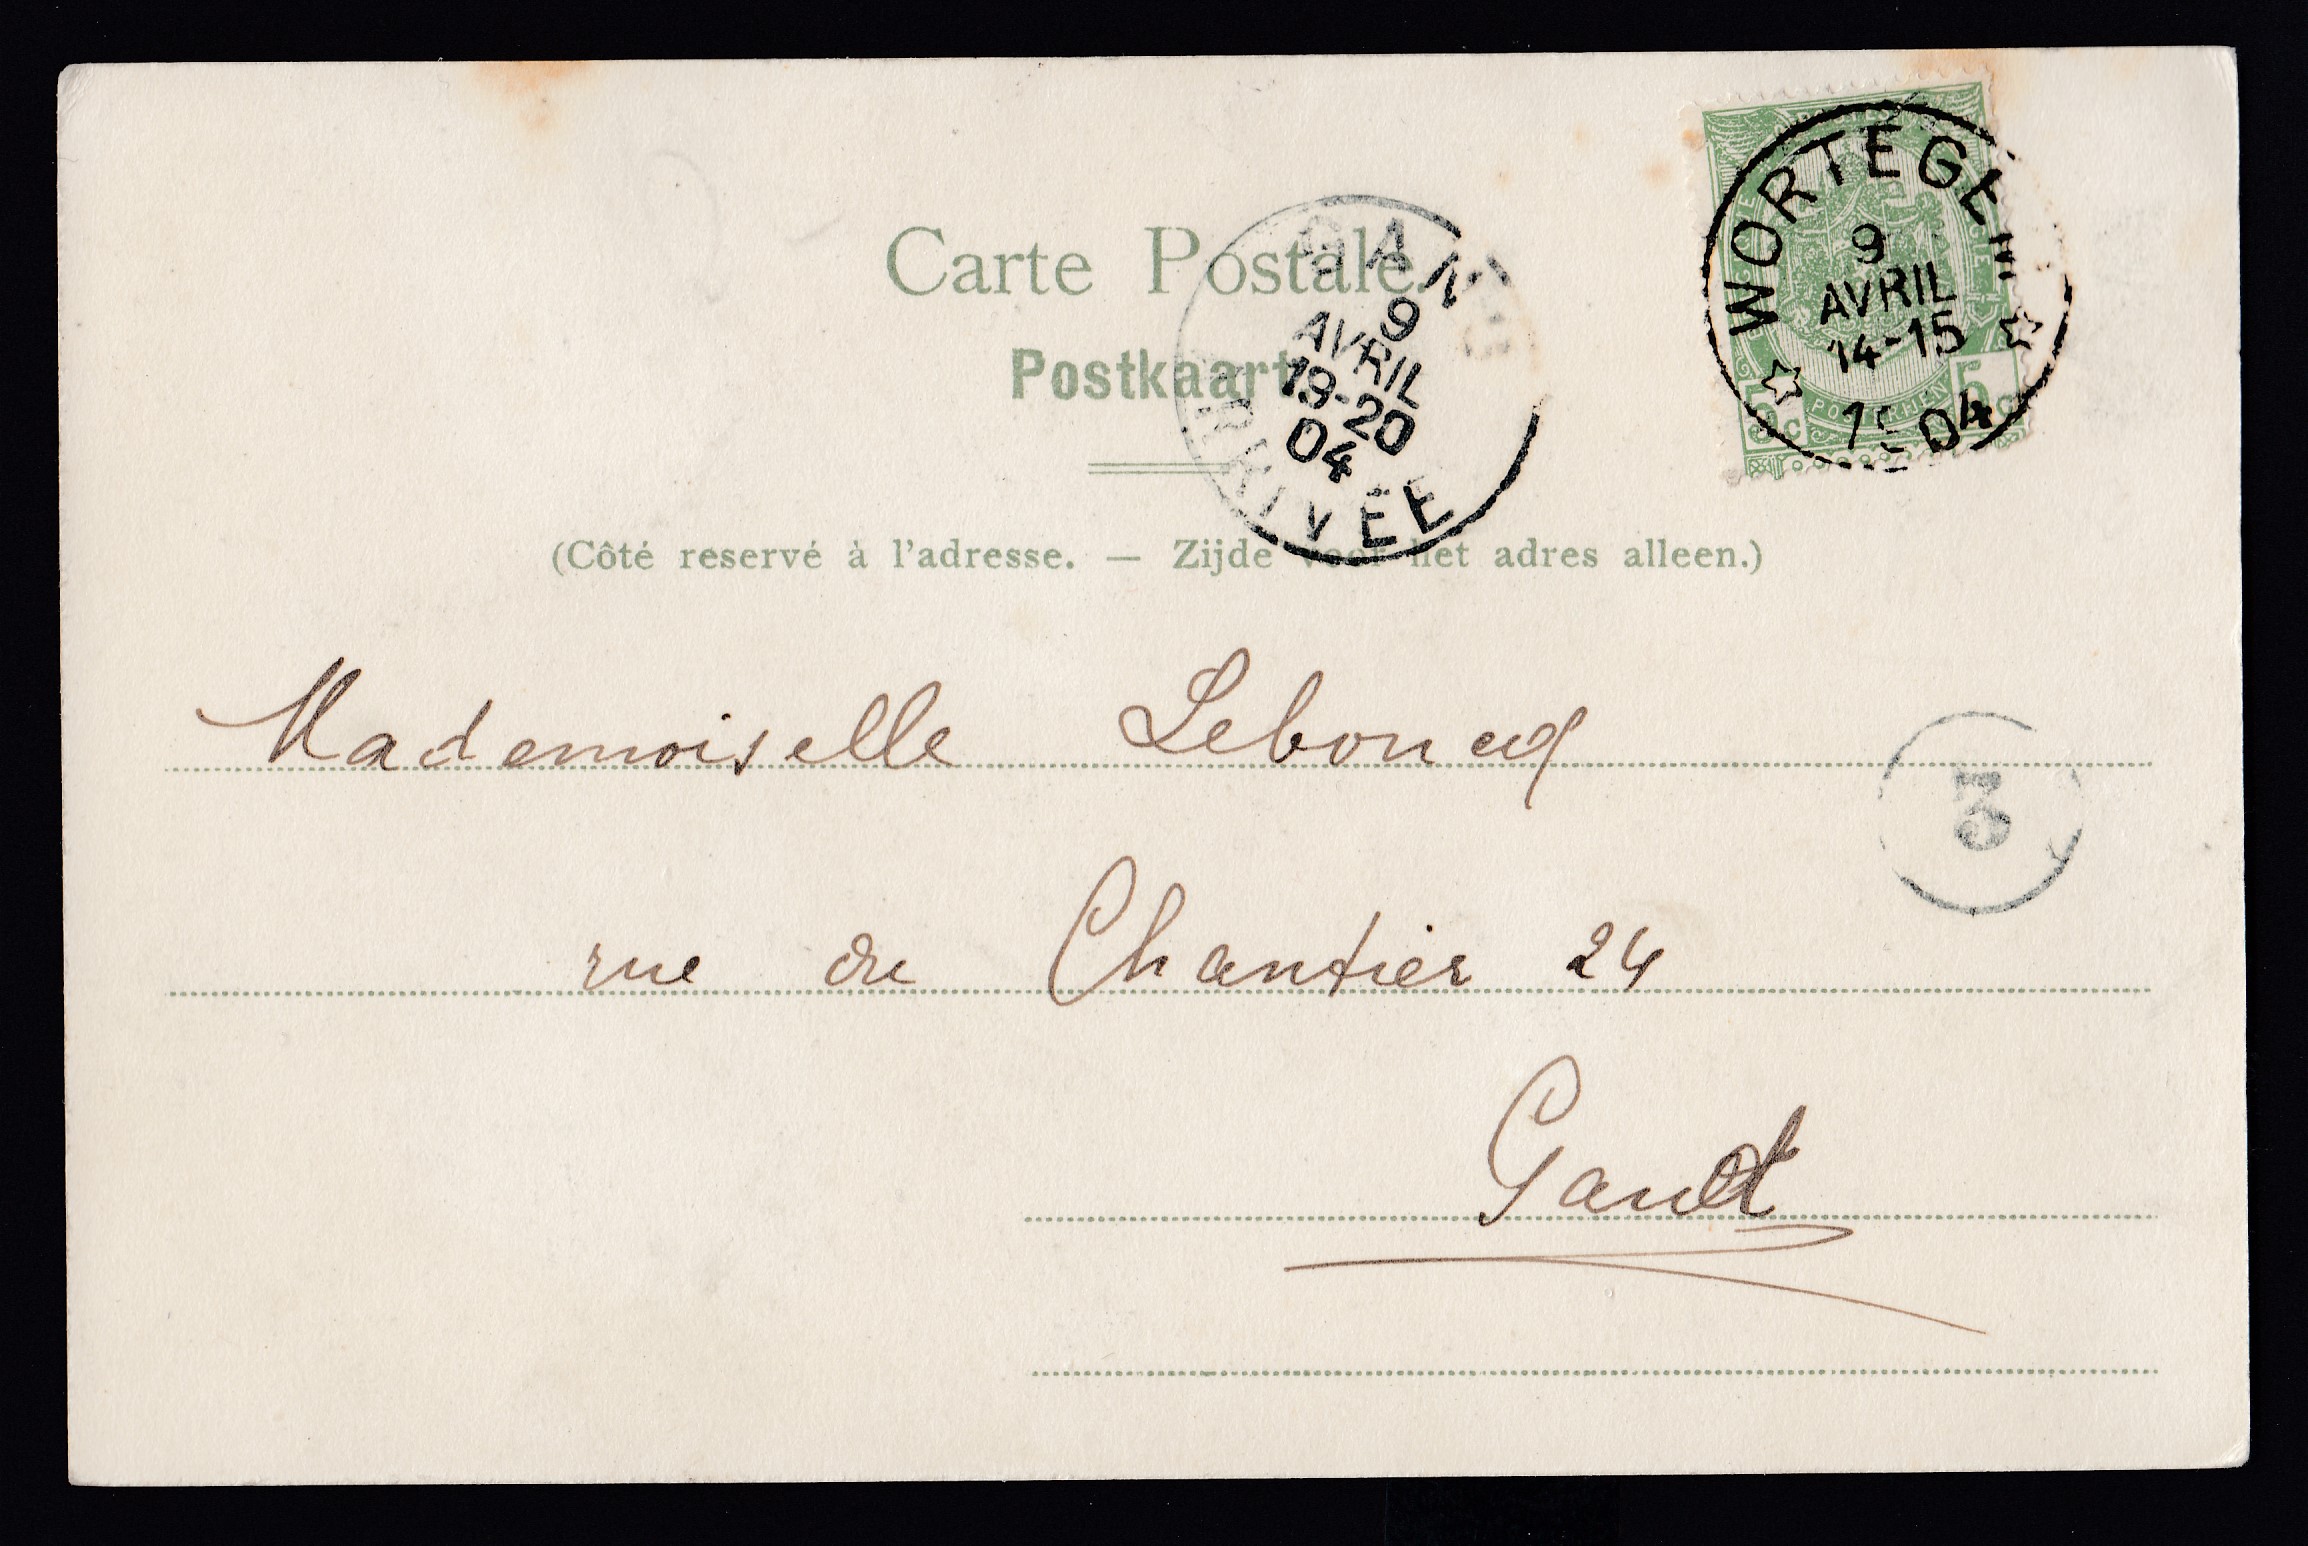 Carte Postale.
Postkaart
(Côté reservé à l'adresse. — Zijde voor het adres alleen.)
WORTEGEM
9
AVRIL
14-15
1904
POSTERIJEN
5 c
5 c
GAND
9
AVRIL
19-20
04
ARRIVÉE
Mademoiselle Leboucq
rue du Chantier 24
Gand